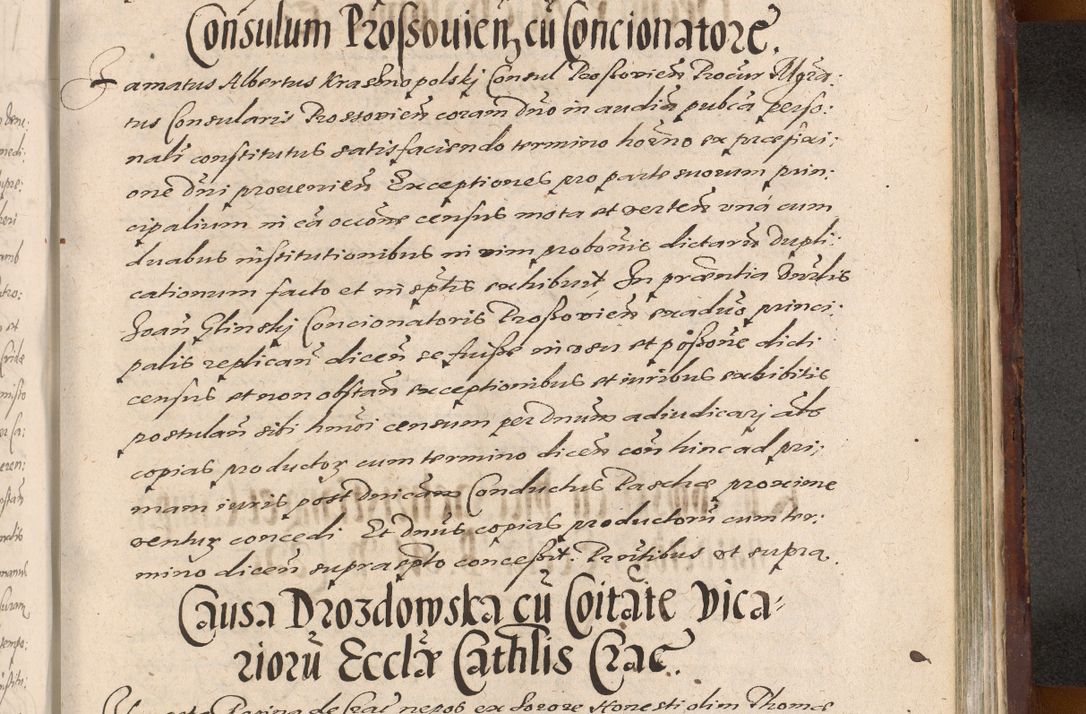 Consulum Prossouien, cũ Concionatore.
Famatus Albertus Krasnopolskj Consul Prossouien Procur Mgra:
tus Consularis Prossouien coram dño in audia pubca perso:
nali constitutus satisfaciendo termino horno ex præfixi:
one dni proueniẽ Exceptiones pro parte suorum prin:
cipalium in cã occone census mota et vertẽ vná cum
duabus institutionibus in vim probonis dictarũ dupli:
cationum facto et in sptis exhibuit In præntia Dnrlis
Joañ Glinskj Concionatoris Prossouien exaduo princi:
palis replicañ dicen se fuisse in vsu et possone dicti
census et non obstañ exceptionibus et iuribus exhibitis
postulañ sibi hmoi censum per dnum adiudicarj abo
copias productor cum termino dicen con hinc ad pri:
mam iuris post dnicam Conductus Paschæ proxime
ventur concedi. Et dnus copias productorũ cum ter:
mino dicen supra spto concessit. Prntibus vt supra.
Causa Drozdowska cũ Coitate Vica:
riorũ Ecclæ Cathlis Crac.
de Crac nepos ex Sorore Honesti olim Thomæ